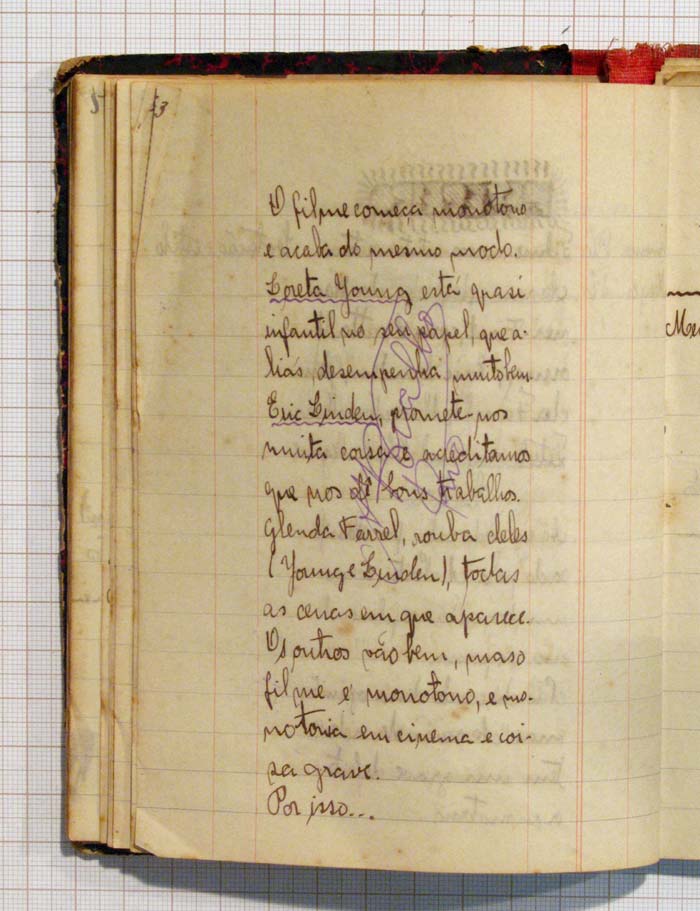 53
O filme começa monotono
e acaba do mesmo modo.
Loreta Young, está quasi
infantil no seu papel, que a-
liás, desempenha muito bem.
Eric Linden, promete-nos
muita coisa e acreditamos
que nos dê bons trabalhos.
Glenda Farrel, rouba deles
(Young e Linden), todas
as cenas em que aparece.
Os outros vão bem, mas o
filme é monotono, e mo-
notonia em cinema e coi-
sa grave.
Por isso...